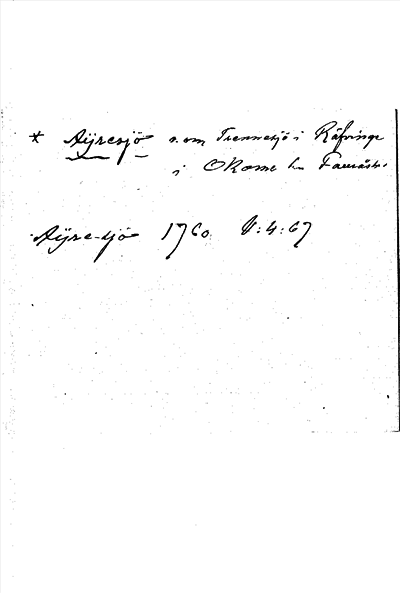 * Aÿresjö n.om Trennesjö i Räfvinge
i Okome hd Faurås hd.
Aÿre-sjö 1760 V:4:67